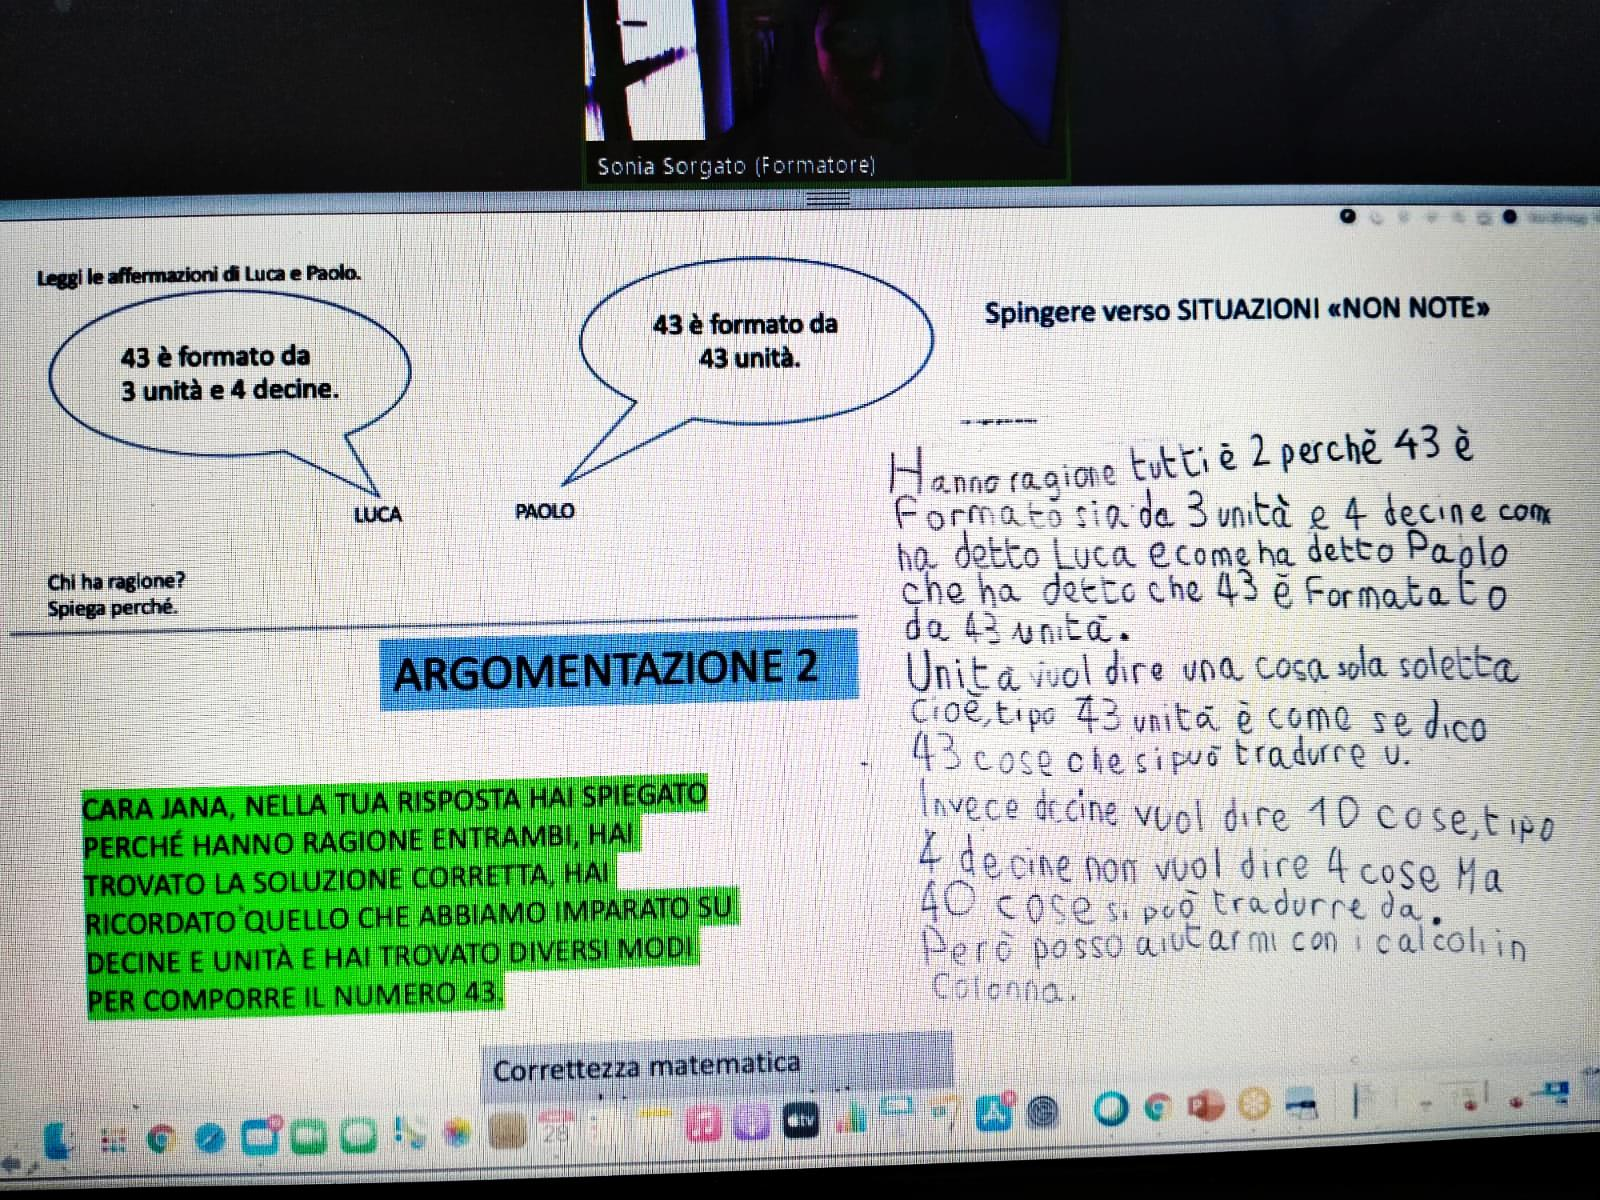 Sonia Sorgato (Formatore)
Leggi le affermazioni di Luca e Paolo.
43 è formato da
3 unità e 4 decine.
LUCA
43 è formato da
43 unità.
PAOLO
Chi ha ragione?
Spiega perché.
Spingere verso SITUAZIONI «NON NOTE»
Hanno ragione tutti è 2 perchè 43 è
Formato sia da 3 unità e 4 decine come
ha detto Luca e come ha detto Paolo
che ha detto che 43 è Formatato
da 43 unità.
Unità vuol dire una cosa sola soletta
cioè, tipo 43 unità è come se dico
43 cose che si può tradurre u.
Invece decine vuol dire 10 cose, tipo
4 decine non vuol dire 4 cose Ma
40 cose si può tradurre da.
Però posso aiutarmi con i calcoli in
Colonna.
ARGOMENTAZIONE 2
CARA JANA, NELLA TUA RISPOSTA HAI SPIEGATO
PERCHÉ HANNO RAGIONE ENTRAMBI, HAI
TROVATO LA SOLUZIONE CORRETTA, HAI
RICORDATO QUELLO CHE ABBIAMO IMPARATO SU
DECINE E UNITÀ E HAI TROVATO DIVERSI MODI
PER COMPORRE IL NUMERO 43.
Correttezza matematica
28
tv